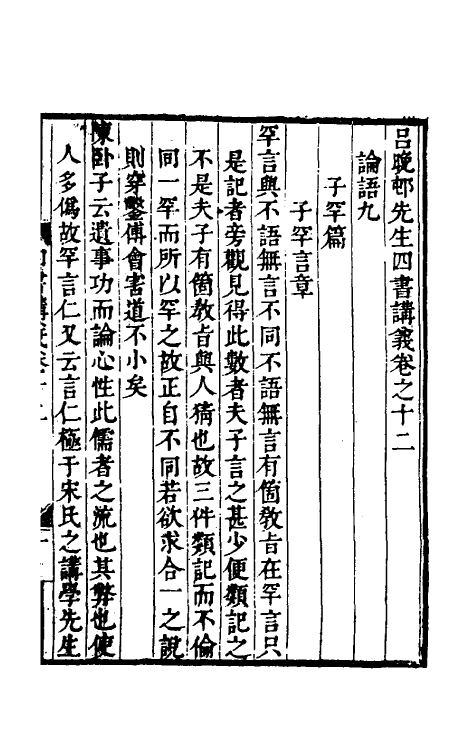 呂晚邨先生四書講義卷之十二
論語九
子罕篇
子罕言章
罕言與不語無言不同不語無言有箇敎旨在罕言只
是記者旁觀見得此數者夫子言之甚少便類記之
不是夫子有箇敎旨與人猜也故三件類記而不倫
同一罕而所以罕之故正自不同若欲求合一之說
則穿鑿傅會害道不小矣
陳卧子云遺事功而論心性此儒者之流也其弊也使
人多僞故罕言仁又云言仁極于宋氏之講學先生